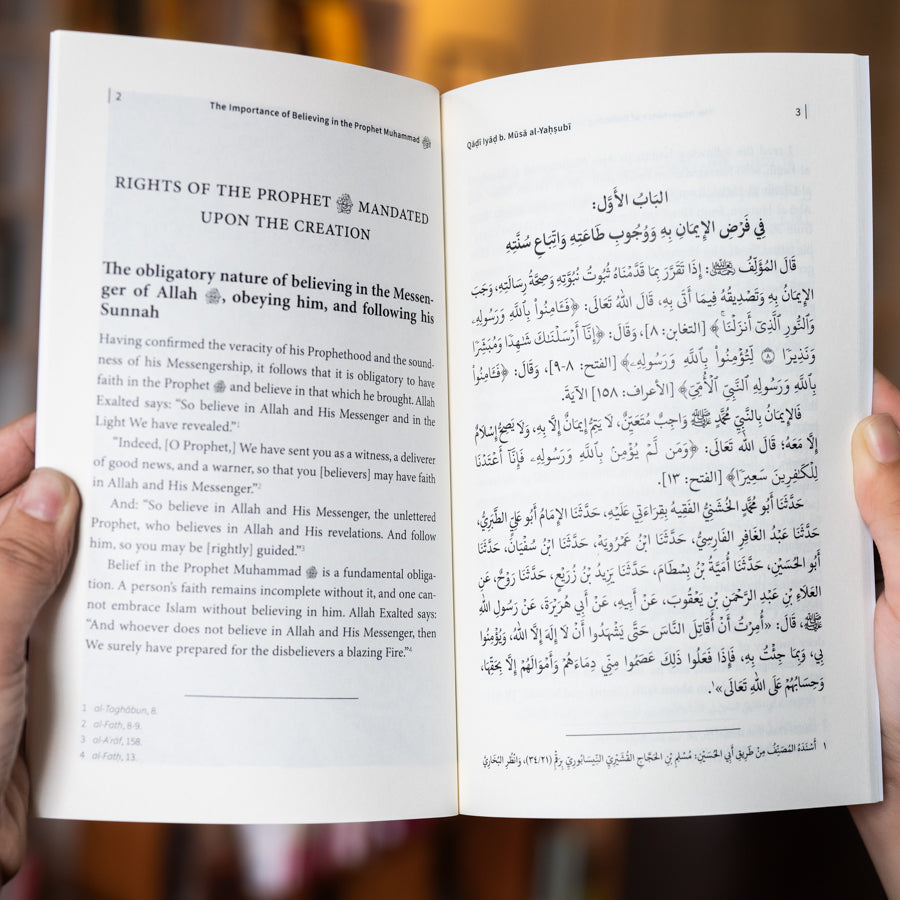 2
The Importance of Believing in the Prophet Muhammad ﷺ
RIGHTS OF THE PROPHET ﷺ MANDATED
UPON THE CREATION
The obligatory nature of believing in the Messen-
ger of Allah ﷺ, obeying him, and following his
Sunnah
Having confirmed the veracity of his Prophethood and the sound-
ness of his Messengership, it follows that it is obligatory to have
faith in the Prophet ﷺ and believe in that which he brought. Allah
Exalted says: “So believe in Allah and His Messenger and in the
Light We have revealed.”1
“Indeed, [O Prophet,] We have sent you as a witness, a deliverer
of good news, and a warner, so that you [believers] may have faith
in Allah and His Messenger.”2
And: “So believe in Allah and His Messenger, the unlettered
Prophet, who believes in Allah and His revelations. And follow
him, so you may be [rightly] guided.”3
Belief in the Prophet Muhammad ﷺ is a fundamental obliga-
tion. A person’s faith remains incomplete without it, and one can-
not embrace Islam without believing in him. Allah Exalted says:
“And whoever does not believe in Allah and His Messenger, then
We surely have prepared for the disbelievers a blazing Fire.”4
1 al-Taghābun, 8.
2 al-Fatḥ, 8-9.
3 al-A‘rāf, 158.
4 al-Fatḥ, 13.
Qāḍī Iyāḍ b. Mūsā al-Yaḥṣubī
3
البَابُ الأَوَّل:
فِي فَرْضِ الإِيمَانِ بِهِ وَوُجُوبِ طَاعَتِهِ وَاتِّبَاعِ سُنَّتِهِ
قَالَ المُؤَلِّفُ: إِذَا تَقَرَّرَ بِمَا قَدَّمْنَاهُ ثُبُوتُ نُبُوَّتِهِ وَصِحَّةُ رِسَالَتِهِ، وَجَبَ
الإِيمَانُ بِهِ وَتَصْدِيقُهُ فِيمَا أَتَى بِهِ، قَالَ اللهُ تَعَالَى: ﴿فَـَٔامِنُواْ بِٱللَّهِ وَرَسُولِهِۦ
وَٱلنُّورِ ٱلَّذِىٓ أَنزَلْنَا﴾ [التغابن: ٨]، وَقَالَ: ﴿إِنَّآ أَرْسَلْنَٰكَ شَٰهِدًا وَمُبَشِّرًا
وَنَذِيرًا ٨ لِّتُؤْمِنُواْ بِٱللَّهِ وَرَسُولِهِۦ﴾ [الفتح: ٨-٩]، وَقَالَ: ﴿فَـَٔامِنُواْ
بِٱللَّهِ وَرَسُولِهِ ٱلنَّبِىِّ ٱلْأُمِّىِّ﴾ [الأعراف: ١٥٨] الآيَةَ.
فَالإِيمَانُ بِالنَّبِيِّ مُحَمَّدٍ ﷺ وَاجِبٌ مُتَعَيِّنٌ، لَا يَتِمُّ إِيمَانٌ إِلَّا بِهِ، وَلَا يَصِحُّ إِسْلَامٌ
إِلَّا مَعَهُ؛ قَالَ اللهُ تَعَالَى: ﴿وَمَن لَّمْ يُؤْمِنۢ بِٱللَّهِ وَرَسُولِهِۦ فَإِنَّآ أَعْتَدْنَا
لِلْكَٰفِرِينَ سَعِيرًا﴾ [الفتح: ١٣].
حَدَّثَنَا أَبُو مُحَمَّدٍ الخُشَنِيُّ الفَقِيهُ بِقِرَاءَتِي عَلَيْهِ، حَدَّثَنَا الإِمَامُ أَبُو عَلِيٍّ الطَّبَرِيُّ،
حَدَّثَنَا عَبْدُ الغَافِرِ الفَارِسِيُّ، حَدَّثَنَا ابْنُ عَمْرُوَيَهْ، حَدَّثَنَا ابْنُ سُفْيَانَ، حَدَّثَنَا
أَبُو الحُسَيْنِ، حَدَّثَنَا أُمَيَّةُ بْنُ بِسْطَامَ، حَدَّثَنَا يَزِيدُ بْنُ زُرَيْعٍ، حَدَّثَنَا رَوْحٌ، عَنِ
العَلَاءِ بْنِ عَبْدِ الرَّحْمَنِ بْنِ يَعْقُوبَ، عَنْ أَبِيهِ، عَنْ أَبِي هُرَيْرَةَ، عَنْ رَسُولِ اللهِ
ﷺ، قَالَ: «أُمِرْتُ أَنْ أُقَاتِلَ النَّاسَ حَتَّى يَشْهَدُوا أَنْ لَا إِلَهَ إِلَّا اللهُ، وَيُؤْمِنُوا
بِي، وَبِمَا جِئْتُ بِهِ، فَإِذَا فَعَلُوا ذَلِكَ عَصَمُوا مِنِّي دِمَاءَهُمْ وَأَمْوَالَهُمْ إِلَّا بِحَقِّهَا،
وَحِسَابُهُمْ عَلَى اللهِ تَعَالَى»١.
١ أَسْنَدَهُ المُصَنِّفُ مِنْ طَرِيقِ أَبِي الحُسَيْنِ: مُسْلِمِ بْنِ الحَجَّاجِ القُشَيْرِيِّ النَّيْسَابُورِيِّ بِرَقْمِ (٣٤/٢١)، وَانْظُرِ البُخَارِيَّ